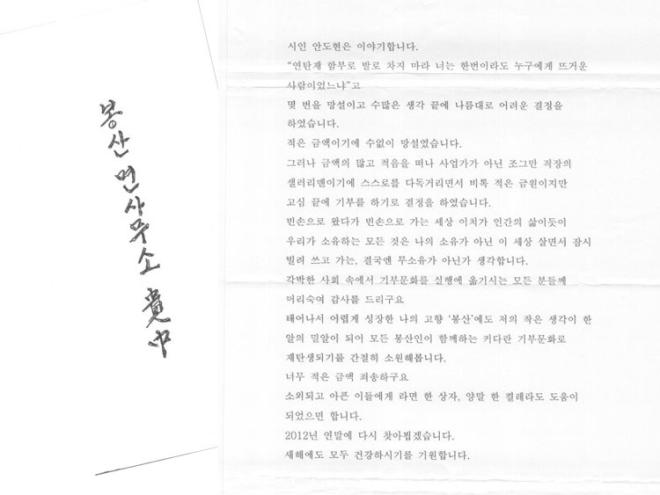 봉산면사무소 貴中
시인 안도현은 이야기합니다.
"연탄재 함부로 발로 차지 마라 너는 한번이라도 누구에게 뜨거운
사람이었느냐"고
몇 번을 망설이고 수많은 생각 끝에 나름대로 어려운 결정을
하였습니다.
적은 금액이기에 수없이 망설였습니다.
그러나 금액의 많고 적음을 떠나 사업가가 아닌 조그만 직장의
샐러리맨이기에 스스로를 다독거리면서 비록 적은 금원이지만
고심 끝에 기부를 하기로 결정을 하였습니다.
빈손으로 왔다가 빈손으로 가는 세상 이치가 인간의 삶이듯이
우리가 소유하는 모든 것은 나의 소유가 아닌 이 세상 살면서 잠시
빌려 쓰고 가는, 결국엔 무소유가 아닌가 생각합니다.
각박한 사회 속에서 기부문화를 실행에 옮기시는 모든 분들께
머리숙여 감사를 드리구요
태어나서 어렵게 성장한 나의 고향 '봉산'에도 저의 작은 생각이 한
알의 밀알이 되어 모든 봉산인이 함께하는 커다란 기부문화로
재탄생되기를 간절히 소원해봅니다.
너무 적은 금액 죄송하구요
소외되고 아픈 이들에게 라면 한 상자, 양말 한 켤레라도 도움이
되었으면 합니다.
2012년 연말에 다시 찾아뵙겠습니다.
새해에도 모두 건강하시기를 기원합니다.